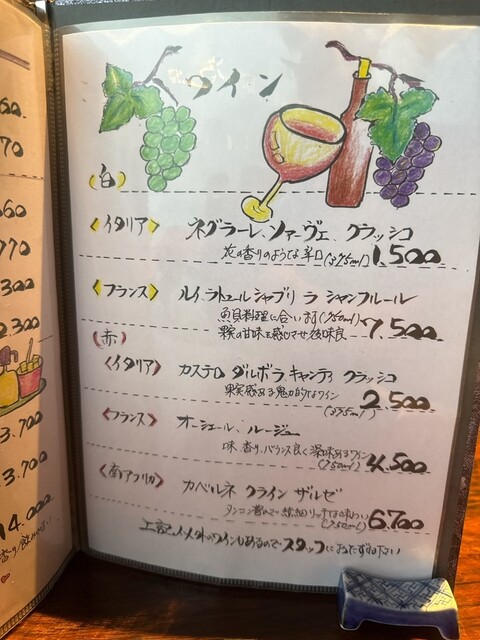 60
70
60
770
300
2.300
3.700
3.700
14.000
ワイン
(白)
<イタリア> ネグラーレ、ソァーヴェ、クラッシコ
花の香りのような辛口(375ml) 1.500
<フランス> ルイ.ラトゥール シャブリ ラ シャンフルール
魚貝料理に合います(750ml)
果実の甘味を感じさせ後味良 7,500
(赤)
<イタリア> カステロ ダルボラ.キャンティ クラッシコ
果実感ある魅力的なワイン
(375ml) 2.500
<フランス> オーシエール、ルージュ
味、香り、バランス良く深味あるワイン
(750ml) 4.500
<南アフリカ> カベルネ クライン ザルゼ
タンニン豊かで 繊細リッチな味わい
(750ml) 6.700
上記以外のワインもあるのでスタッフにおたずね下さい